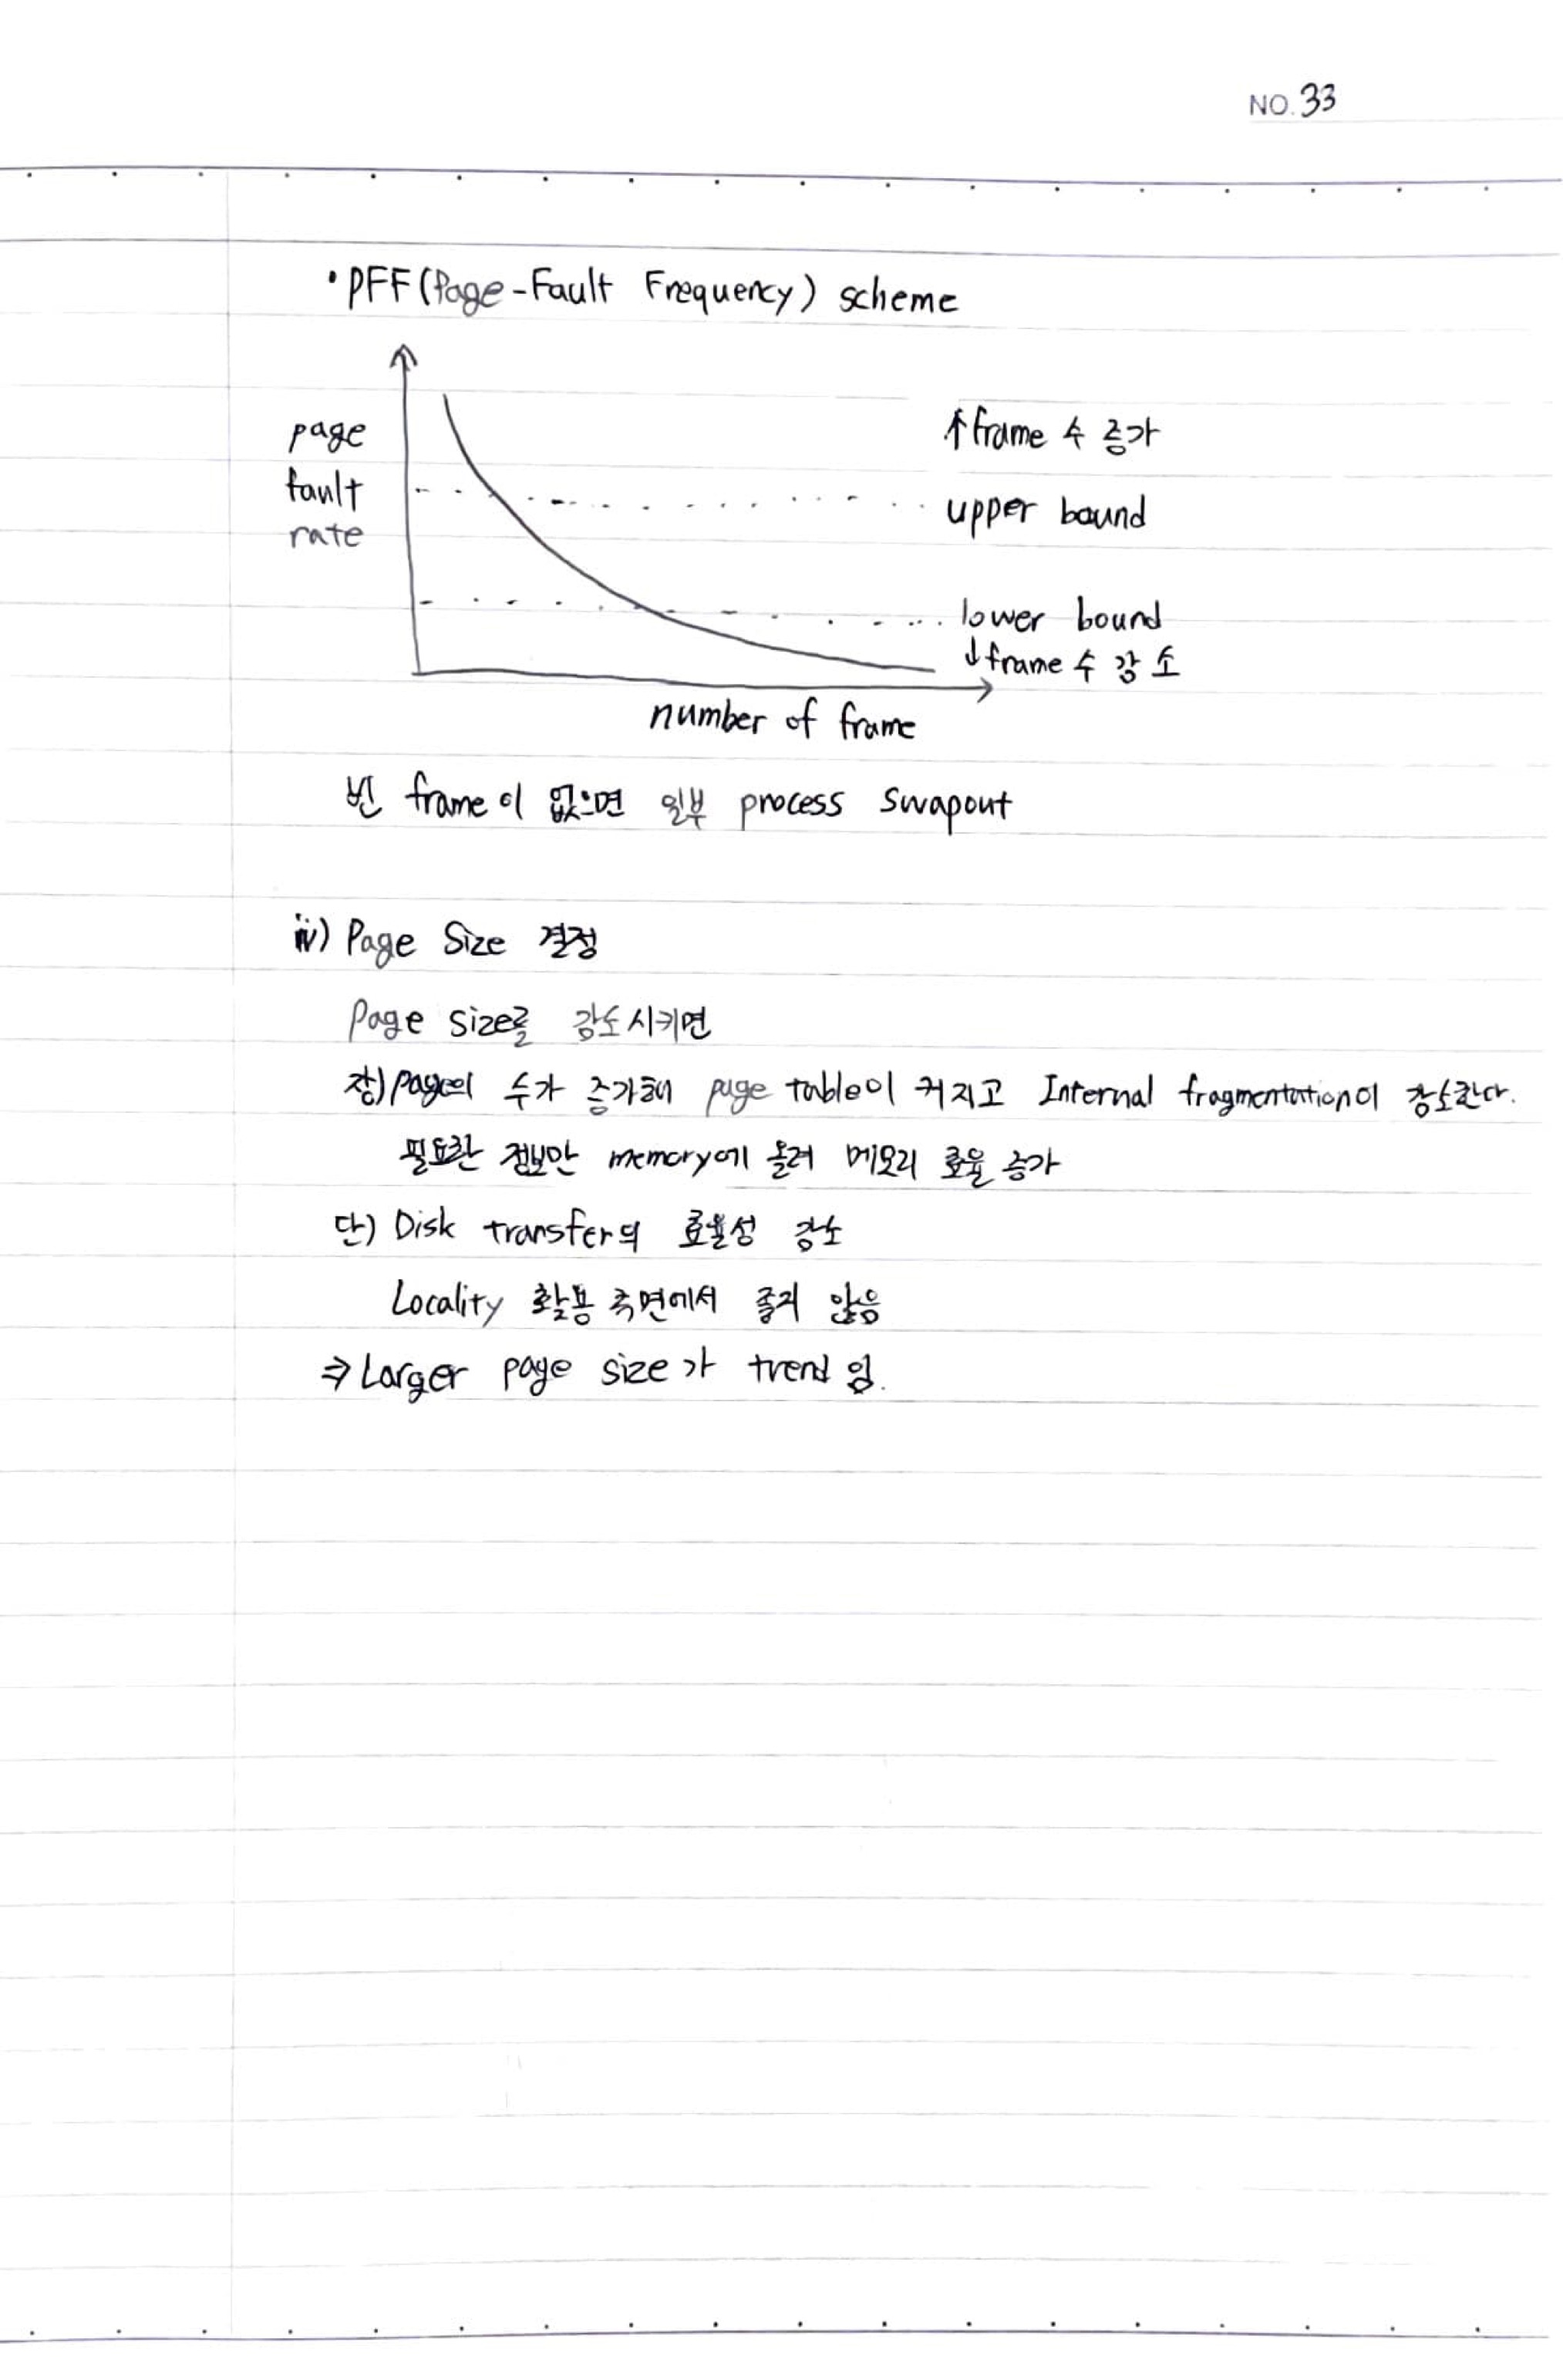 NO. 33
• PFF (Page-Fault Frequency) scheme
page
fault
rate
↑ frame 수 증가
upper bound
lower bound
↓ frame 수 감소
number of frame
빈 frame이 없으면 일부 process swapout
iv) Page Size 결정
Page size를 감소시키면
장) page의 수가 증가해 page table이 커지고 Internal fragmentation이 감소한다.
필요한 정보만 memory에 올려 메모리 효율 증가
단) Disk transfer의 효율성 감소
Locality 활용 측면에서 좋지 않음
⇒ Larger page size가 trend임.